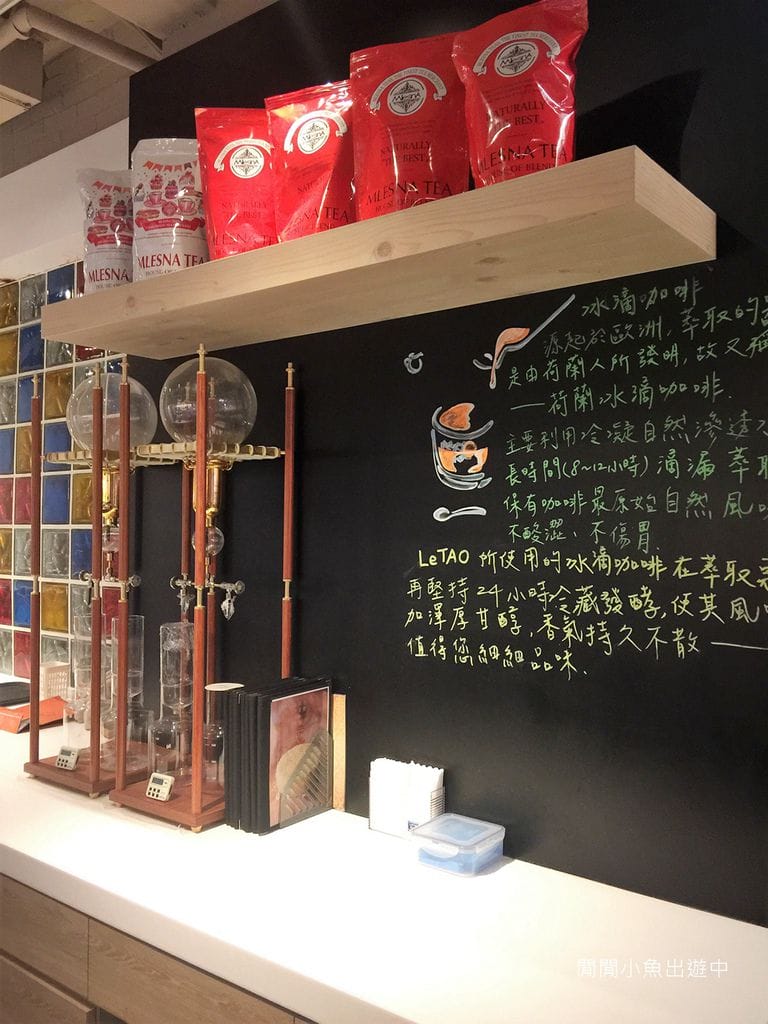 MLESNA TEA
MLESNA TEA
HOUSE OF
NATURALLY
MLESNA
NATURALLY
THE BEST
MLESNA TEA
HOUSE OF
MLESNA
NATURALLY
THE BEST
MLESNA TEA
HOUSE OF BLEN
MLESNA
NATURALLY
BEST
MLESNA TEA
HOUSE OF BLEN
冰滴咖啡
源起於歐洲,萃取的
是由荷蘭人所發明,故又稱
——荷蘭冰滴咖啡.
主要利用冷凝自然滲透
長時間(8~12小時)滴漏萃取
保有咖啡最原始自然風味
不酸澀、不傷胃
LeTAO 所使用的冰滴咖啡在萃取完
再堅持24小時冷藏發酵,使其風
加澤厚甘醇,香氣持久不散——
值得您細細品味.
閒閒小魚出遊中